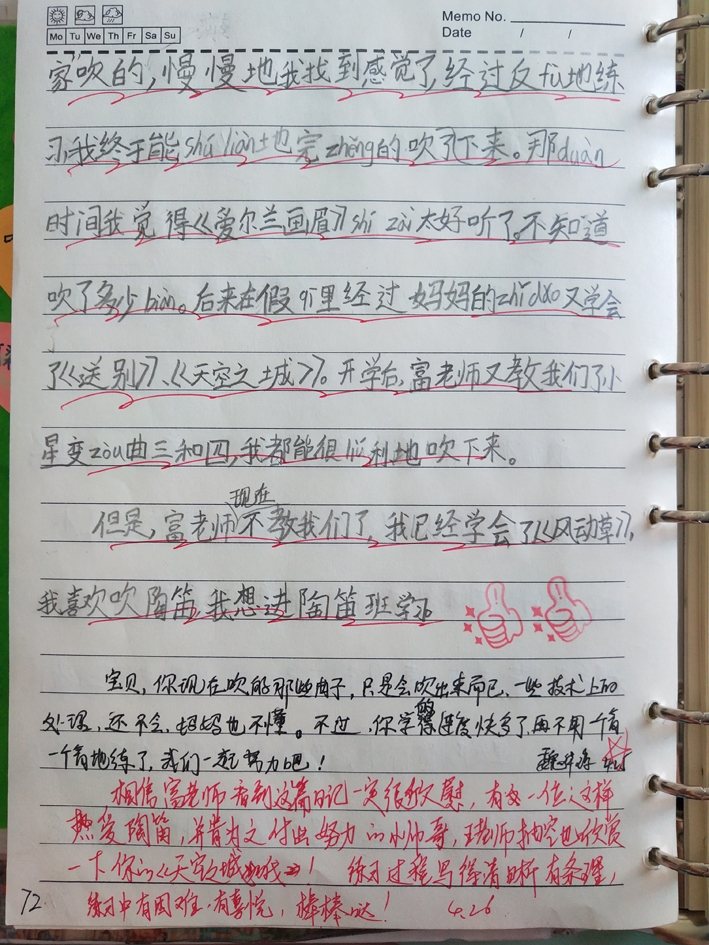 Memo No.
Date / /
Mo Tu We Th Fr Sa Su
家吹的，慢慢地我找到感觉了，经过反fù地练
习，我终于能shú liàn地完zhěng的吹了下来。那duàn
时间我觉得《爱尔兰画眉》shí zài太好听了。不知道
吹了多少biàn。后来在假qī里经过妈妈的zhǐ dǎo又学会
了《送别》、《天空之城》。开学后，富老师又教我们了小
星变zòu曲三和四，我都能很顺利地吹下来。
现在
但是，富老师不教我们了，我已经学会了《风动草》，
我喜欢吹陶笛，我想进陶笛班学习
宝贝，你现在吹的那些曲子，只是会吹出来而已，一些技术上的
处理，还不会，妈妈也不懂。不过，你学的进度快多了，再不用一个音
一个音地练了，我们一起努力吧！
相信富老师看到这篇日记一定很欣慰，有如一位这样
热爱陶笛，并肯为之付出努力的小帅哥，老师抽空也欣赏
一下你的《天空之城》！ 练习过程写得清晰有条理，
练习中有困难，有喜悦，棒棒哒！ 4.26
72